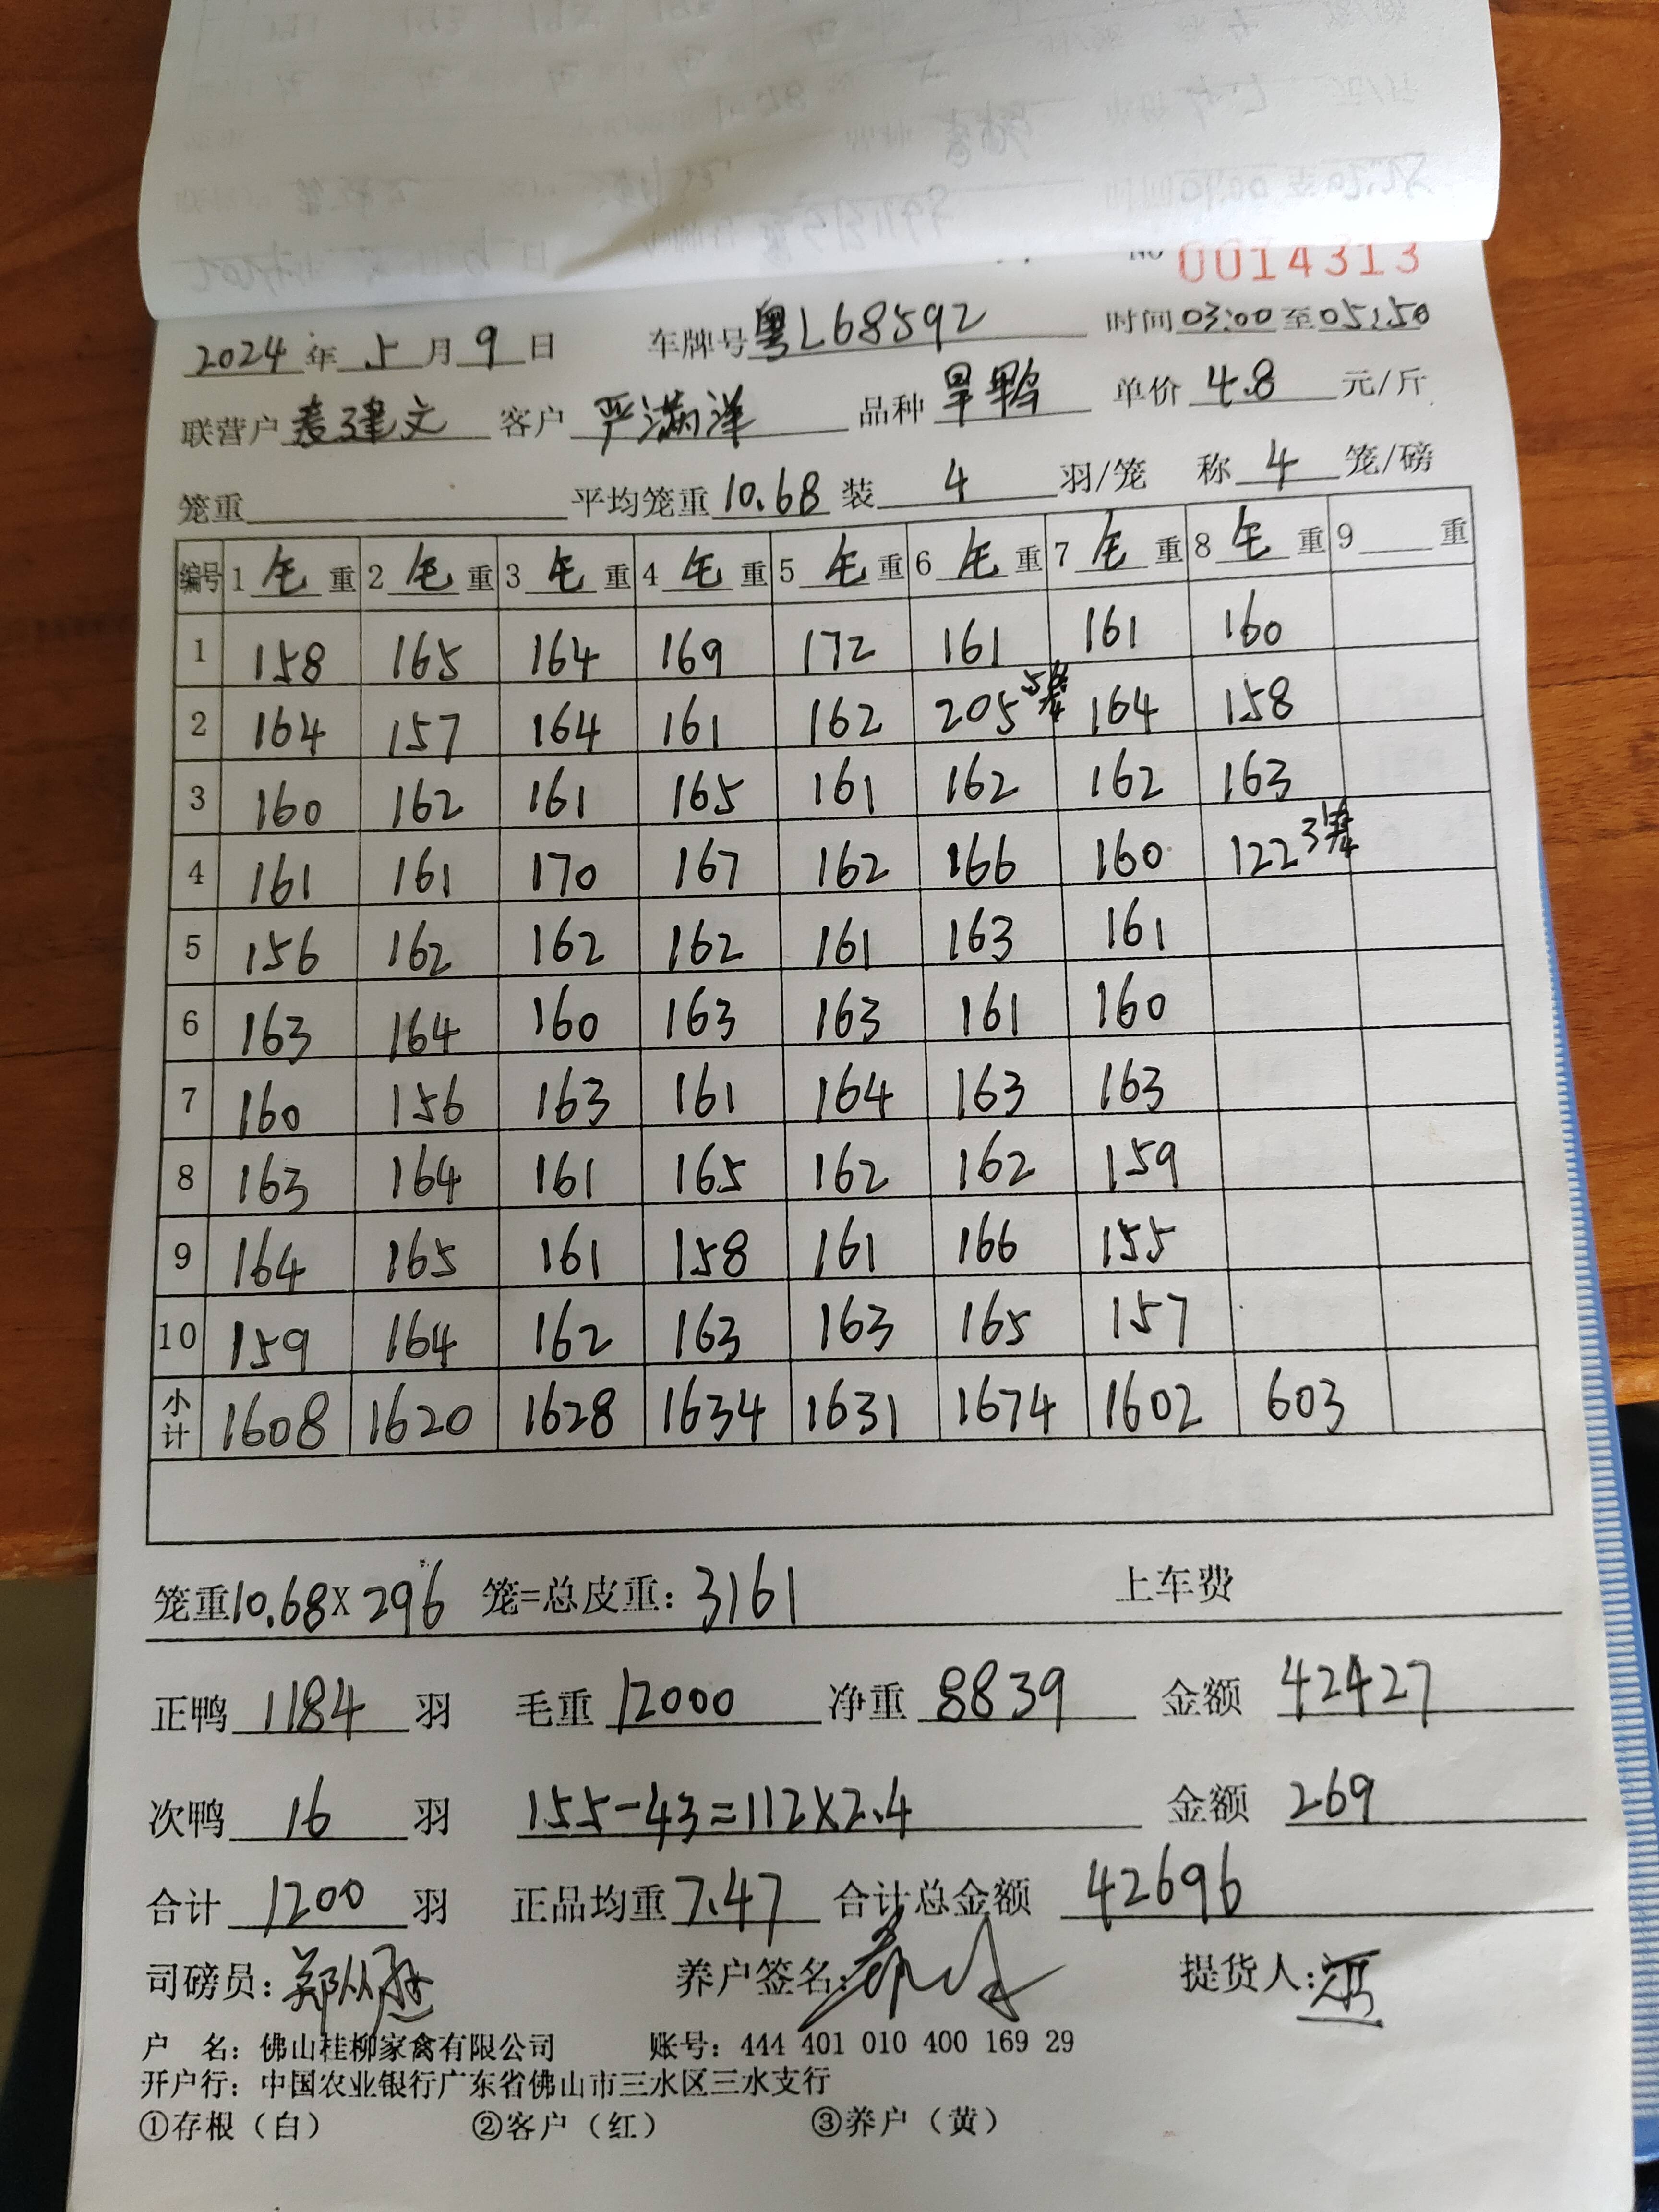 No 0014313
2024 年 5 月 9 日 车牌号 粤L68592 时间 03:00 至 05:50
联营户 麦建文 客户 严满洋 品种 旱鸭 单价 4.8 元/斤
笼重 平均笼重 10.68 装 4 羽/笼 称 4 笼/磅
编号 1 毛 重 2 毛 重 3 毛 重 4 毛 重 5 毛 重 6 毛 重 7 毛 重 8 毛 重 9 重
1 158 165 164 169 172 161 161 160
2 164 157 164 161 162 205 5笼 164 158
3 160 162 161 165 161 162 162 163
4 161 161 170 167 162 166 160 122 3笼
5 156 162 162 162 161 163 161
6 163 164 160 163 163 161 160
7 160 156 163 161 164 163 163
8 163 164 161 165 162 162 159
9 164 165 161 158 161 166 155
10 159 164 162 163 163 165 157
小计 1608 1620 1628 1634 1631 1674 1602 603
笼重10.68X 296 笼=总皮重: 3161 上车费
正鸭 1184 羽 毛重 12000 净重 8839 金额 42427
次鸭 16 羽 155-43=112X2.4 金额 269
合计 1200 羽 正品均重 7.47 合计总金额 42696
司磅员: 养户签名: 提货人:
户 名: 佛山桂柳家禽有限公司 账号: 444 401 010 400 169 29
开户行: 中国农业银行广东省佛山市三水区三水支行
①存根（白） ②客户（红） ③养户（黄）